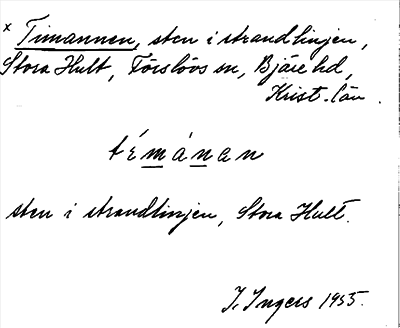 x Timannen, sten i strandlinjen,
Stora Hult, Förslövs sn, Bjäre hd,
Krist. län.
témánan
sten i strandlinjen, Stora Hult.
I. Ingers 1955.